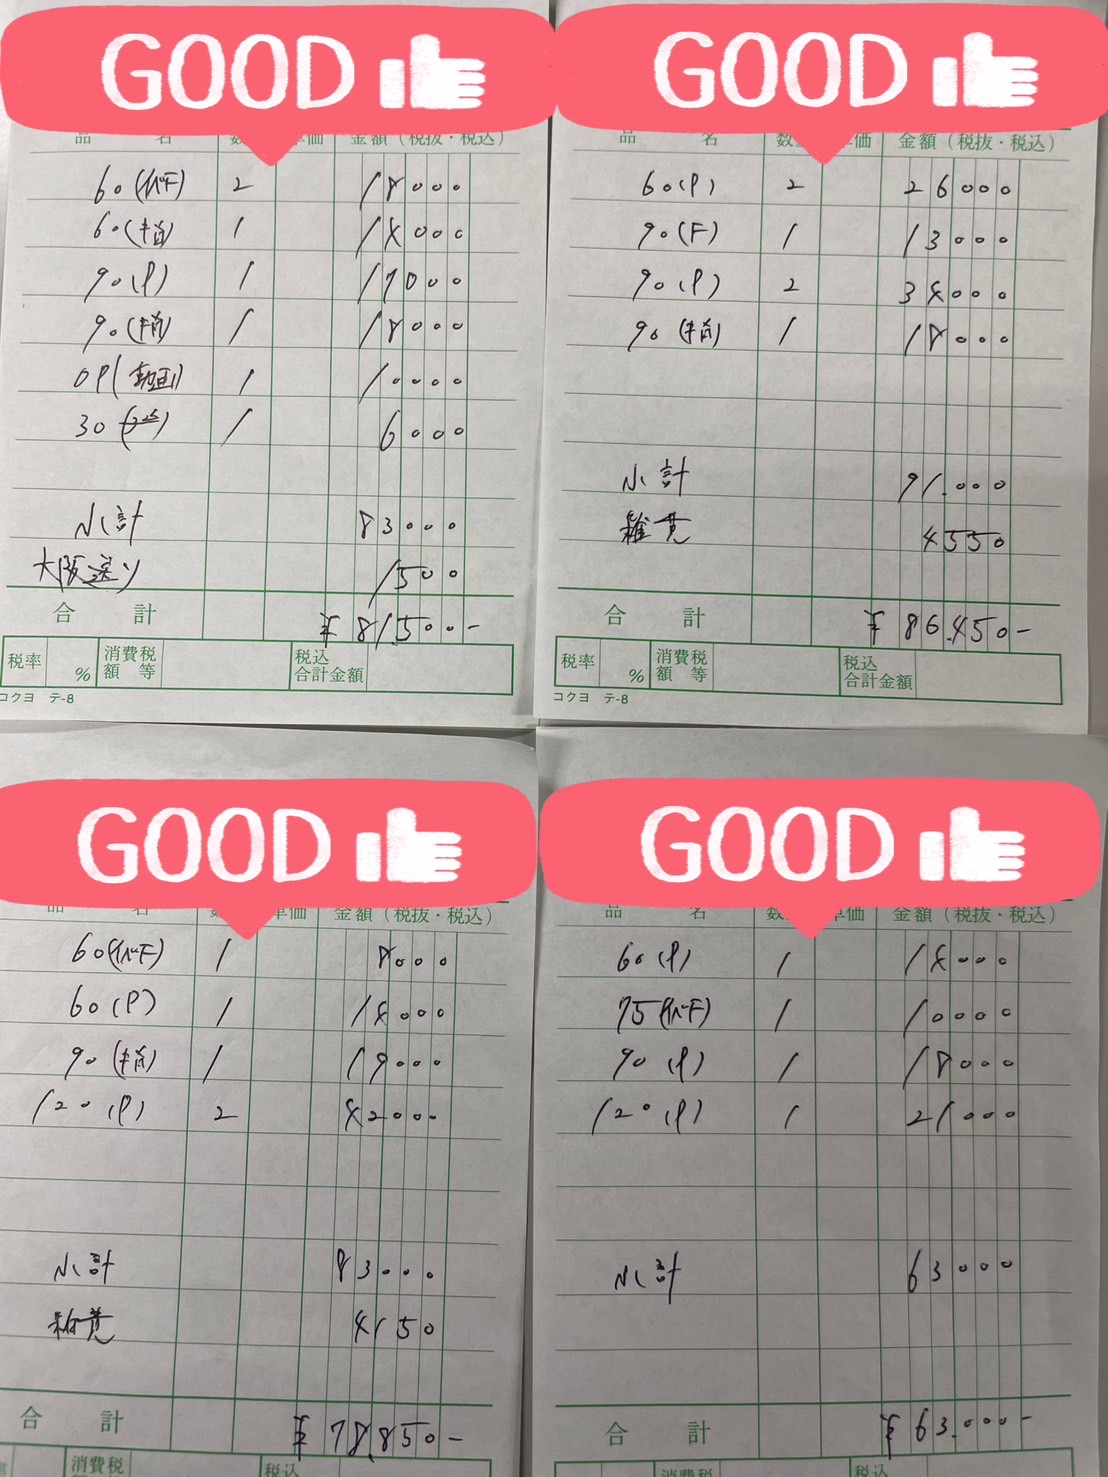 GOOD
品 名 数 単価 金額(税抜・税込)
60(イベF) 2 18000
60(本指) 1 14000
90(P) 1 17000
90(本指) 1 18000
OP(動画) 1 10000
30 1 6000
小計 83000
大阪送り 1500
合計 ¥81,500-
税率 % 消費税額等 税込合計金額
コクヨ テ-8
GOOD
品 名 数 単価 金額(税抜・税込)
60(P) 2 26000
90(F) 1 13000
90(P) 2 34000
90(本指) 1 18000
小計 91.000
雑費 4550
合計 ¥86,450-
税率 % 消費税額等 税込合計金額
コクヨ テ-8
GOOD
品 名 数 単価 金額(税抜・税込)
60(イベF) 1 8000
60(P) 1 14000
90(本指) 1 19000
120(P) 2 42000
小計 83000
雑費 4150
合計 ¥78,850-
消費税 税込
GOOD
品 名 数 単価 金額(税抜・税込)
60(P) 1 14000
75(イベF) 1 10000
90(P) 1 18000
120(P) 1 21000
小計 63000
合計 ¥63,000-
消費税 税込